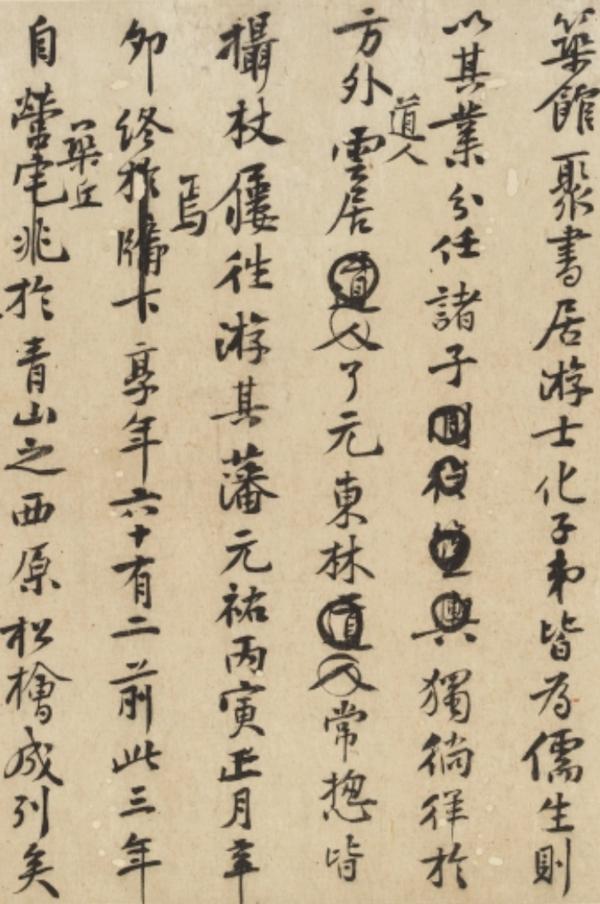 築館聚書居游士化子弟皆為儒生則
以其業分任諸子與獨徜徉於
道人
方外雲居道人了元東林道人常揔皆
攝杖屨往游其藩元祐丙寅正月辛
焉
卯終於牖下享年六十有二前此三年
築丘
自營宅兆於青山之西原松檜成列矣